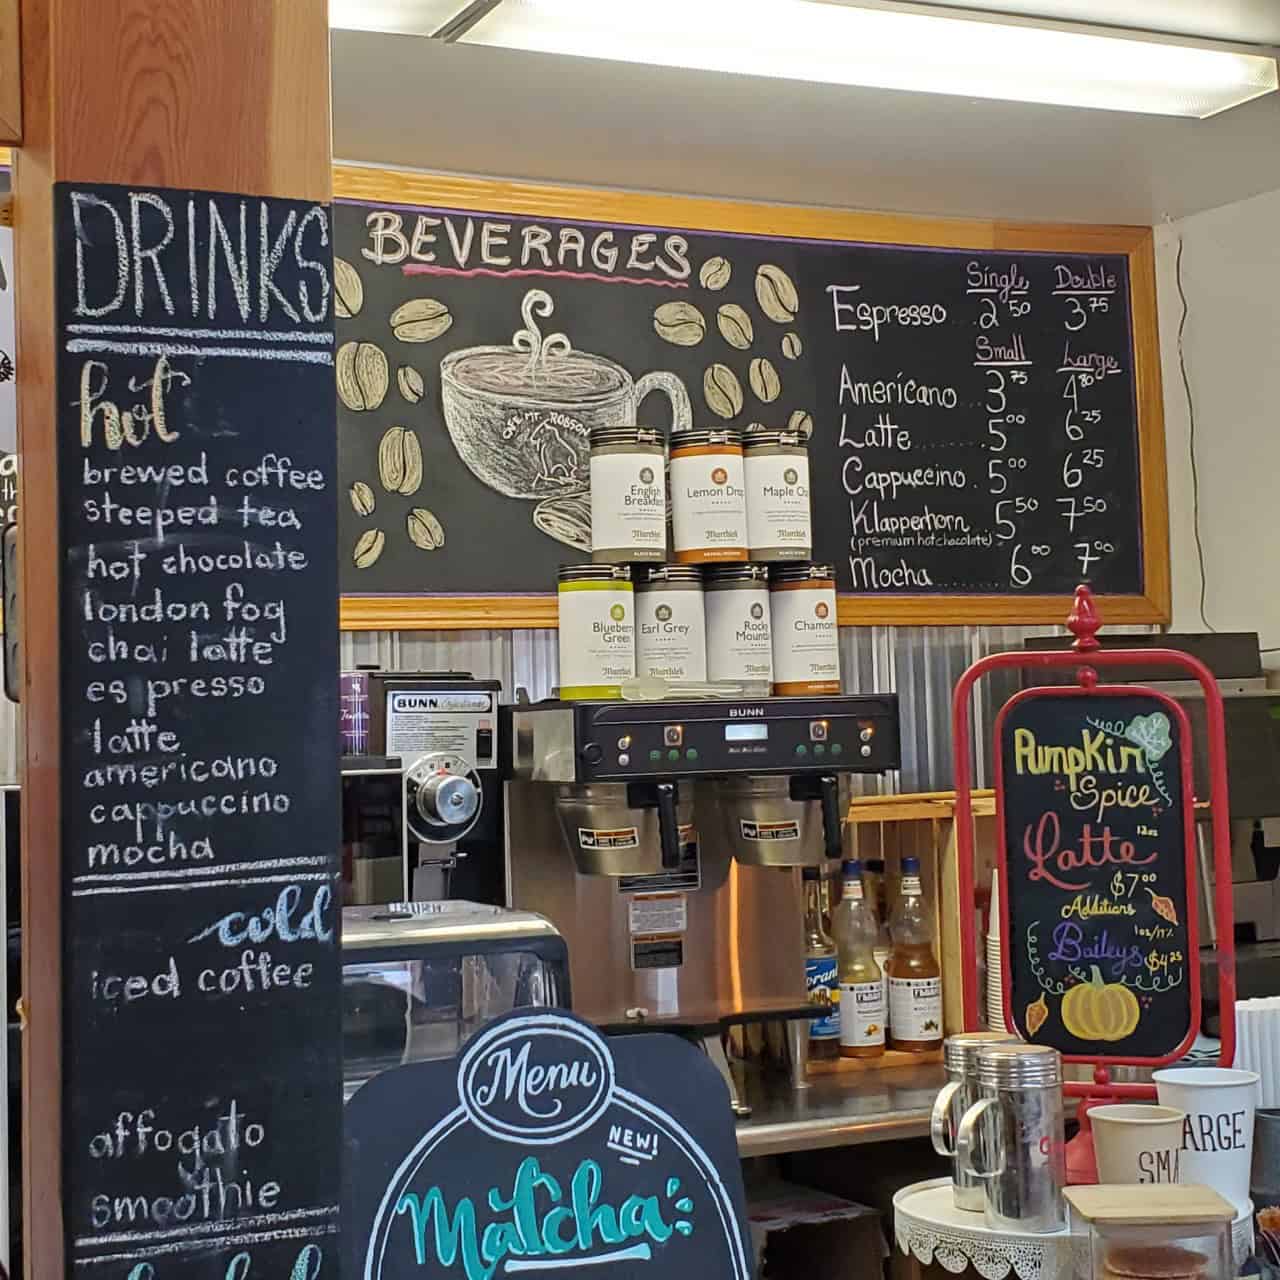 DRINKS
hot
brewed coffee
steeped tea
hot chocolate
london fog
chai latte
espresso
latte
americano
cappuccino
mocha
cold
iced coffee
affogato
smoothie
BEVERAGES
CAFE MT. ROBSON
Single Double
Espresso .. 2 50 3 75
Small Large
Americano ... 3 75 4 80
Latte ....... 5 00 6 25
Cappuccino . 5 00 6 25
Klapperhorn 5 50 7 50
(premium hot chocolate)
Mocha ........ 6 00 7 00
English
Breakfast
Murchie's
Lemon Drop
Murchie's
Maple
Murchie's
Blueberry
Green
Murchie's
Earl Grey
Murchie's
Rocky
Mounta
Murchie's
Chamom
Murchie's
BUNN
BUNN
Menu
NEW!
Matcha
Pumpkin
Spice
Latte 12oz
$7 00
Additions
1oz/17%
Baileys $4 25
SMA
LARGE